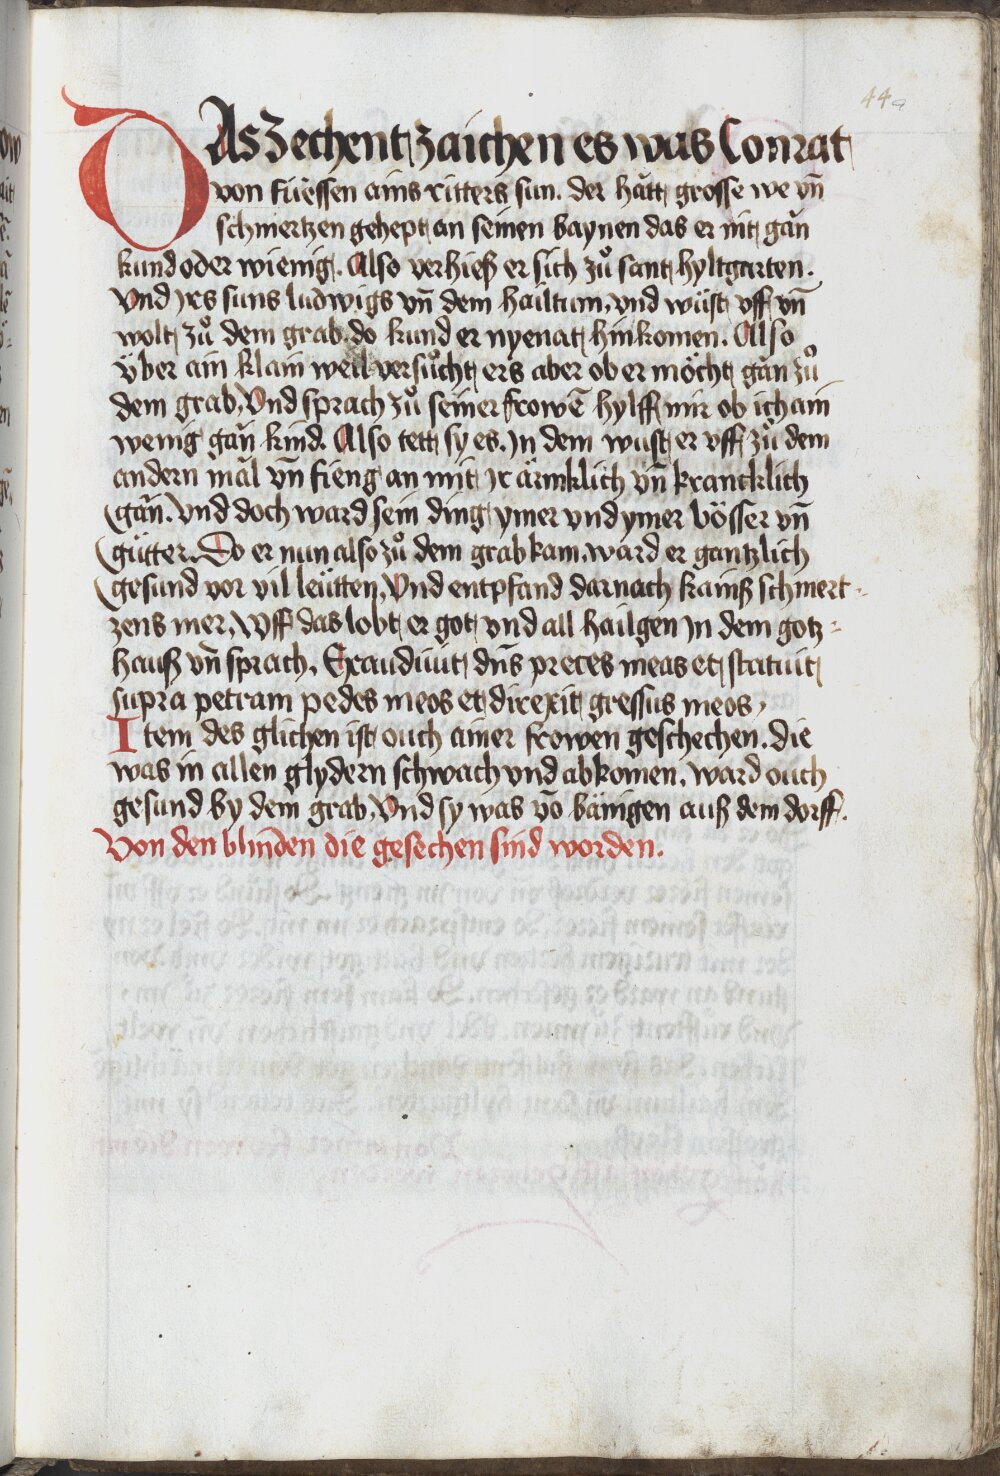 44a
DAs Zechent zaichen es was Conrat
von Füessen ains ritters sun. der hǎtt grosse we vn̄
schmertzen gehept an seinen baynen das er nit gǎn
kund oder wienig. Also verhieß er sich zů sant hyltgarten.
Vnd irs suns ludwigs vn̄ dem hailtum, vnd wüst vff vn̄
wolt zů dem grab. do kund er nyenat hinkomen. Also
über ain klain weil versůcht ers aber ob er möcht gǎn zů
dem grab, Vnd sprach zů seiner frowē hylff mir ob ich ain
wenig gǎn kind. Also tett sy es. In dem wust er vff zů dem
andern mǎl vn̄ fieng an mit ir ärmklich vn̄ krancklich
gǎn. Vnd doch ward sein ding ymer vnd ymer bösser vn̄
gütter. Do er nun also zů dem grab kam, ward er gantzlich
gesund vor vil leütten, Vnd entpfand darnach kainß schmert-
zens mer, Vff das lobt er got vnd all hailgen in dem gotz=
hauß vn̄ sprach, Exaudiuit dn̄s preces meas et statuit
supra petram pedes meos et direxit gressus meos,
Item des glichen ist ouch ainer frowen geschechen. die
was in allen glydern schwach vnd abkomen, ward ouch
gesund by dem grab, Vnd sy was vō bäingen auß dem dorff.
Von den blinden die gesechen sind worden.